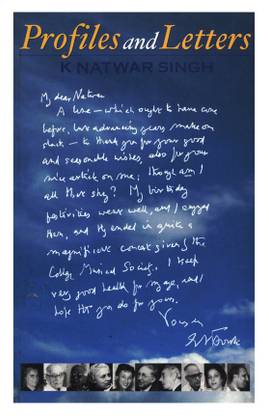 Profiles and Letters
K NATWAR SINGH
My dear Natwar
A line – which ought to have come
before, but advancing years make one
slack – to thank you for your good
and seasonable wishes, also for your
nice article on me; though am I
all that shy? My birthday
festivities went well, and I enjoyed
them, and they ended in quite a
magnificent concert given by the
College Musical Society. I keep
very good health for my age, and
hope that you do for yours.
Yours